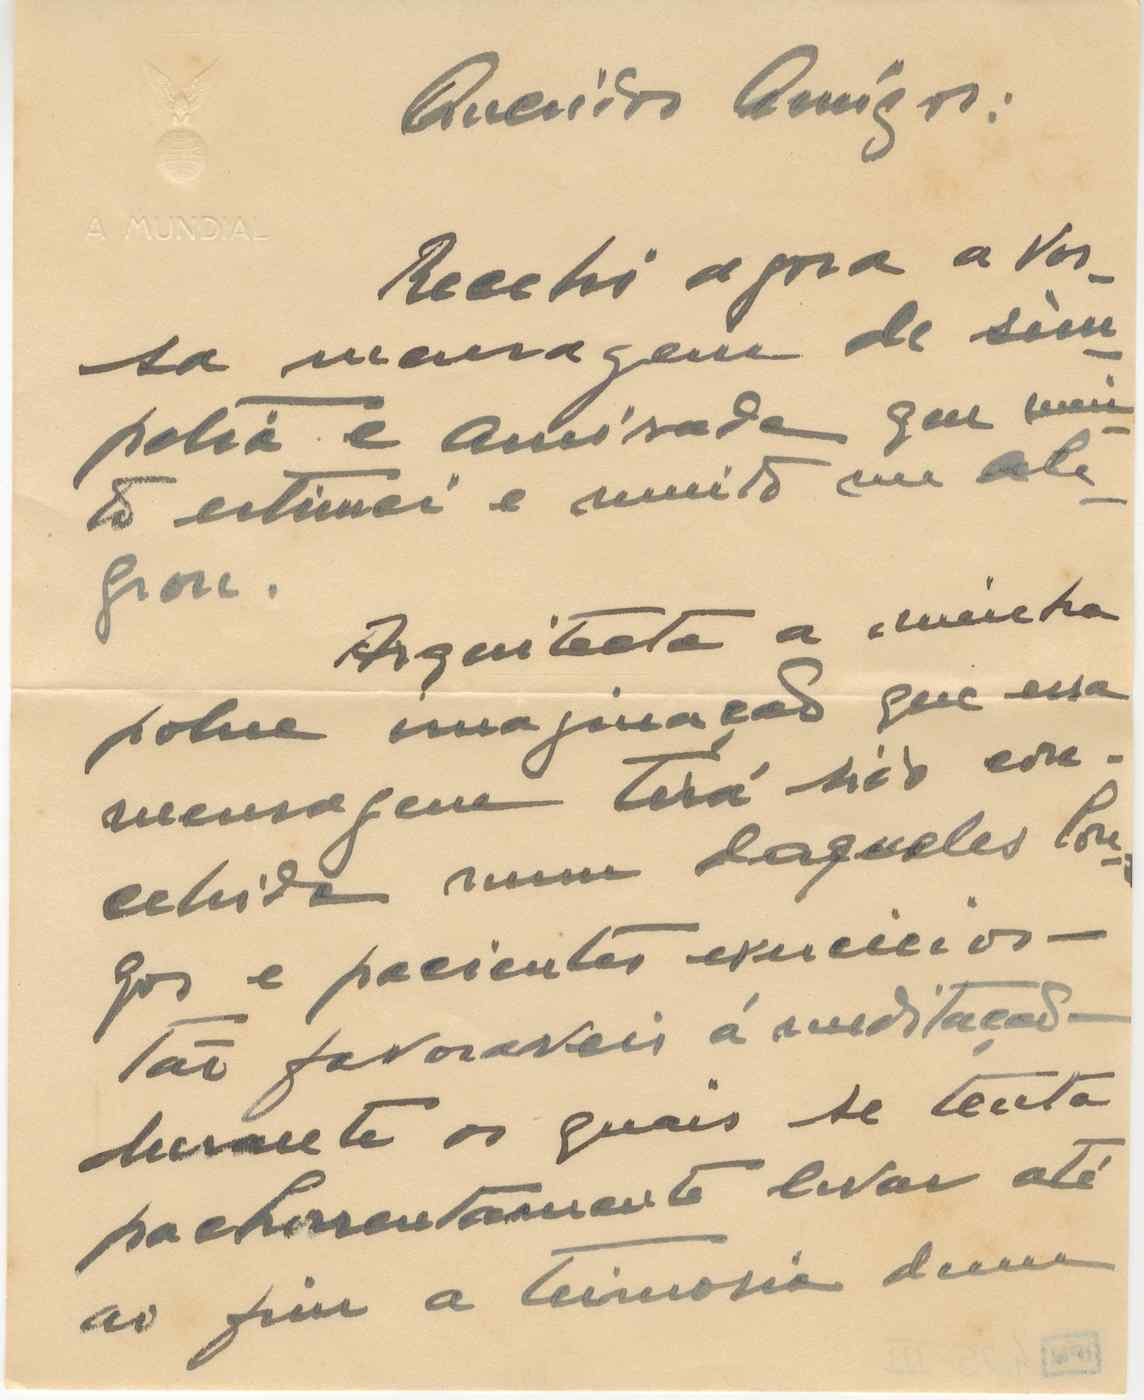 A MUNDIAL
Queridos Amigos:
Recebi agora a vos-
sa mensagem de sim-
patia e amizade que mui-
to estimei e muito me ale-
grou.
Arquitecta a minha
pobre imaginação que essa
mensagem terá sido con-
cebida num daqueles lon-
gos e pacientes exercicios —
tão favoraveis á meditação —
durante os quais se tenta
pachorrentamente levar até
ao fim a teimosia dum